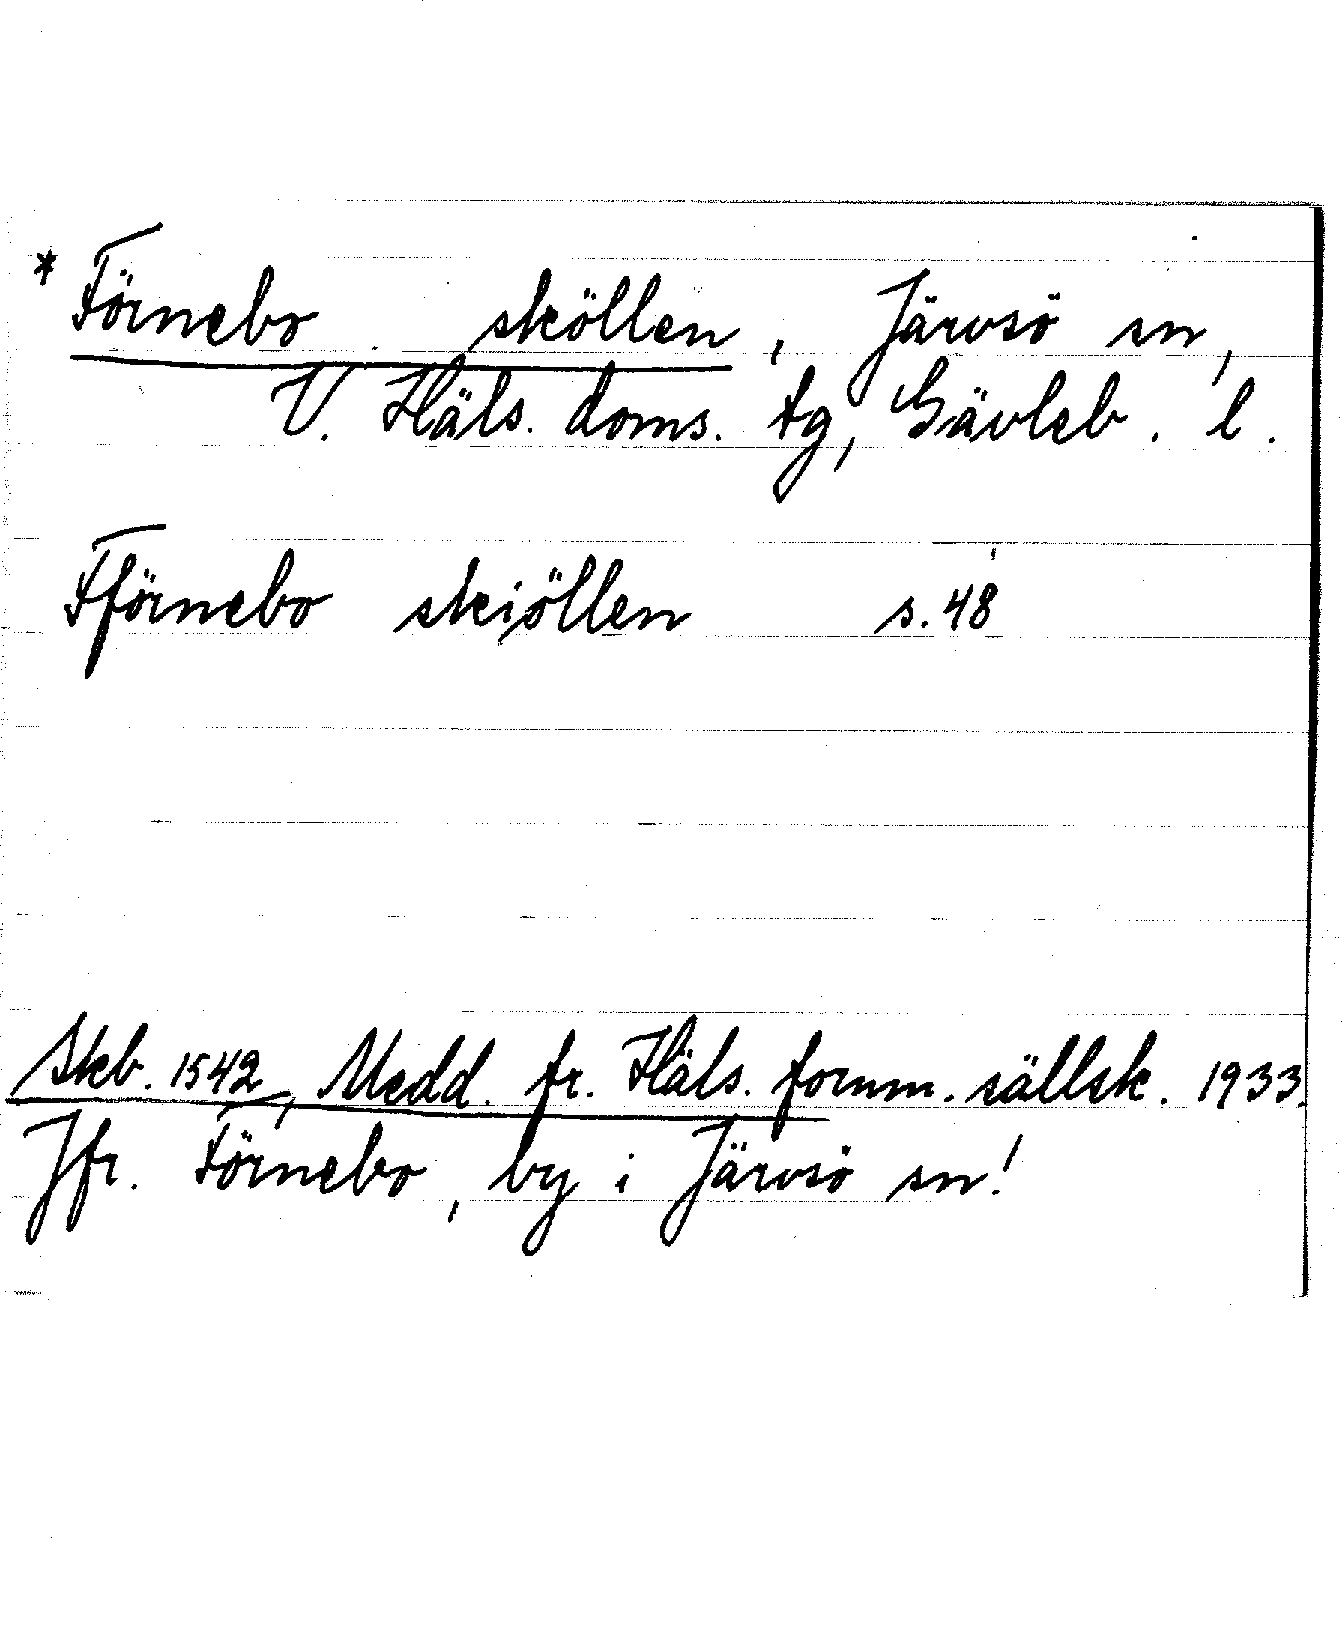 * Förnebo sköllen, Järvsö sn,
V. Häls. doms. tg, Gävleb. l.
Fförnebo skiöllen s. 48
Skb. 1542, Medd. fr. Häls. fornm. sällsk. 1933.
Jfr. Förnebo, by i Järvsö sn!